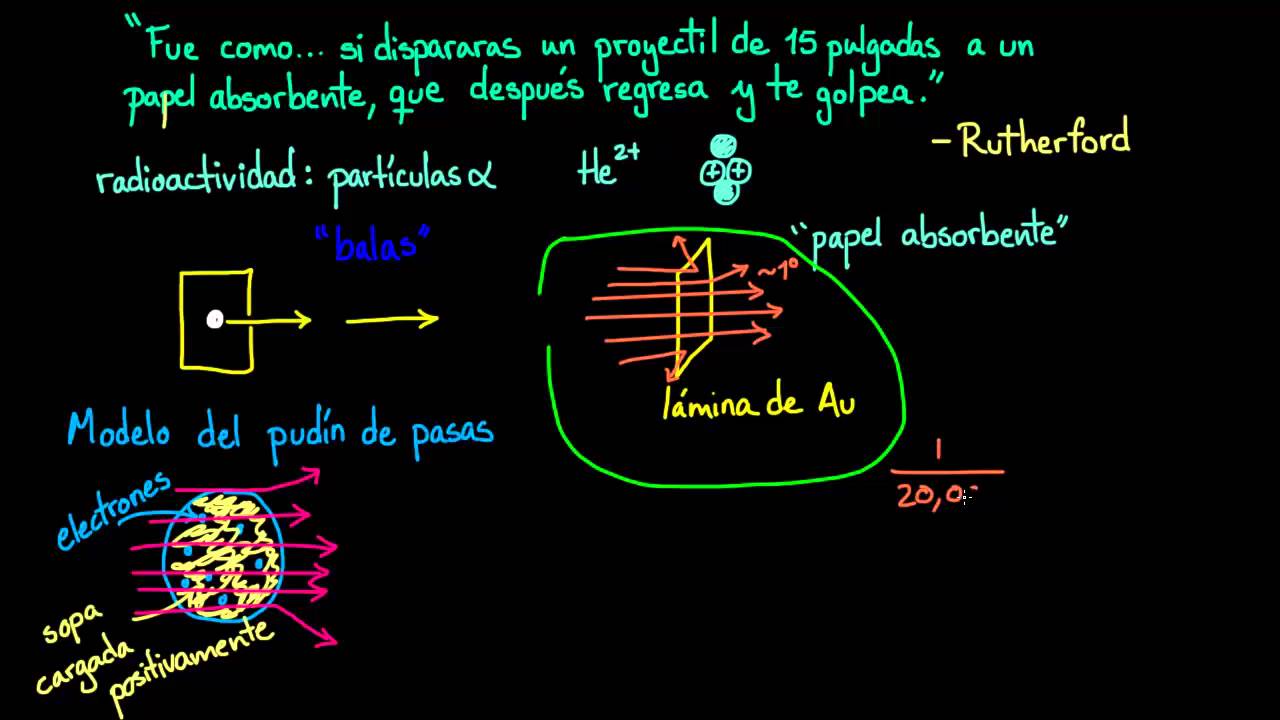 "Fue como... si dispararas un proyectil de 15 pulgadas a un
papel absorbente, que después regresa y te golpea."
- Rutherford
radioactividad: partículas α He²⁺
+ +
"balas"
"papel absorbente"
~1°
lámina de Au
Modelo del pudín de pasas
1
20,0
electrones
sopa
cargada
positivamente